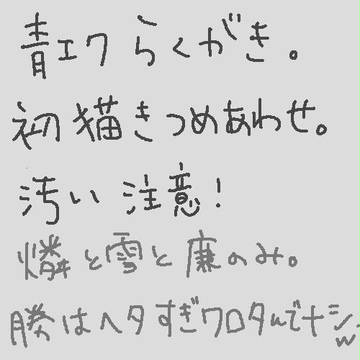 青エクらくがき。
初描きつめあわせ。
汚い注意!
燐と雪と廉のみ。
勝はヘタすぎワロタんでナシw